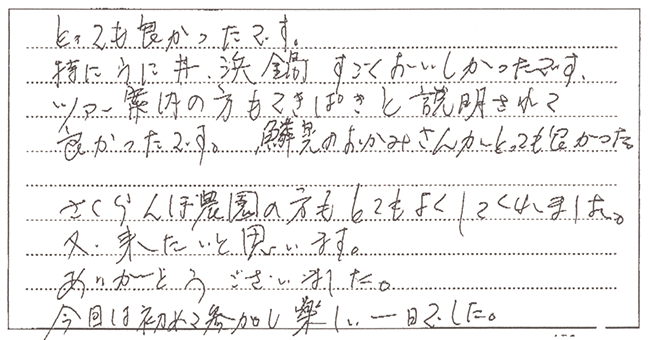 とっても良かったです。
特にうに丼、浜鍋 すごくおいしかったです。
ツアー案内の方もてきぱきと説明されて
良かったです。 鱗晃のおかみさんがとっても良かった。
さくらんぼ農園の方もとてもよくしてくれました。
又、来たいと思います。
ありがとうございました。
今回は初めて参加し楽しい一日でした。